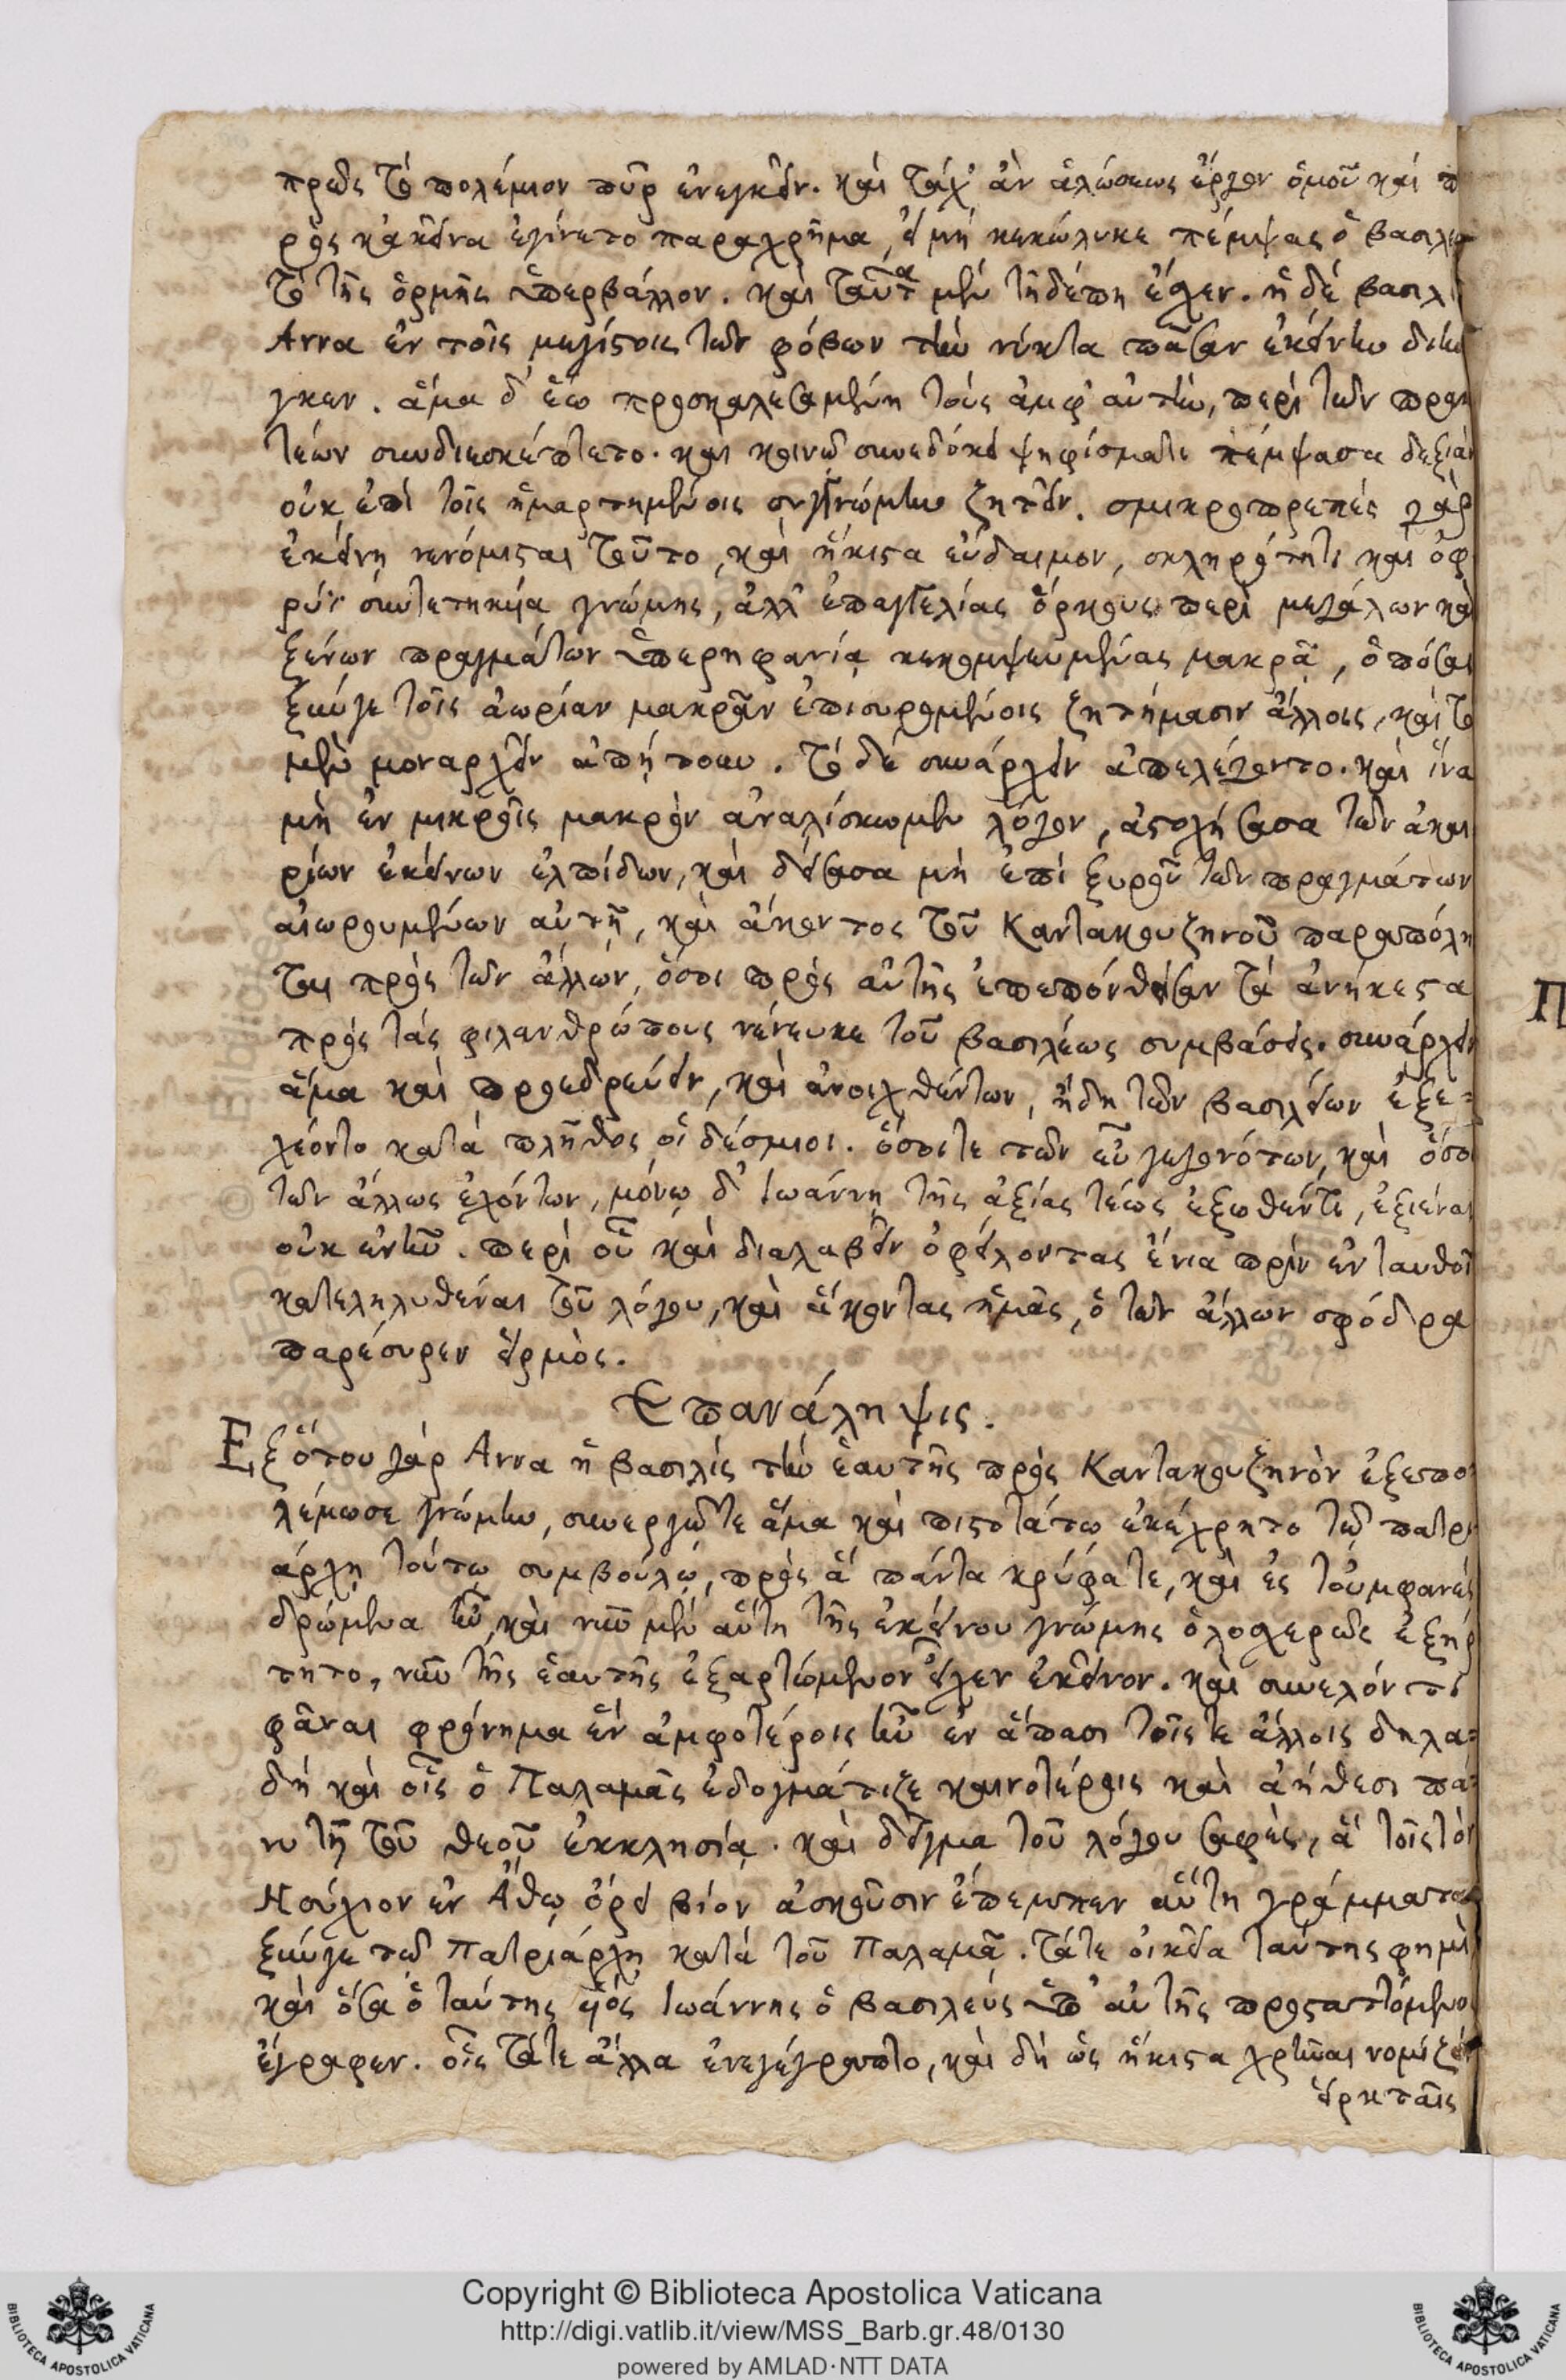 πρὸς τὸ πολέμιον πῦρ ἐνεγκεῖν. καὶ τάχ' ἂν ἁλώσεως ἔργον ὁμοῦ καὶ π
ρὸς κἀκεῖνα ἐγίνετο παραχρῆμα, εἰ μὴ κεκώλυκε πέμψας ὁ βασιλεὺ
τὸ τῆς ὁρμῆς ὑπερβάλλον. καὶ ταῦτα μὲν τῇδέπῃ ἔσχεν. ἡ δὲ βασιλὶ
Αννα ἐν τοῖς μεγίστοις τῶν φόβων τὴν νύκτα πᾶσαν ἐκείνην διήν
γκεν. ἅμα δ' ἕῳ προσκαλεσαμένη τοὺς ἀμφ' αὐτὴν, περὶ τῶν πρακ
τέων συνδιεσκέπτετο. καὶ κοινῷ συνεδόκει ψηφίσματι πέμψασα δεξιὰν
οὐκ ἐπὶ τοῖς ἡμαρτημένοις συγγνώμην ζητεῖν. σμικροπρεπὲς γὰρ
ἐκείνῃ νενόμισται τοῦτο, καὶ ἥκιστα εὔδαιμον, σκληρότητι καὶ ὀφ
ρύϊ συντετηκυίᾳ γνώμης, ἀλλ' ἐπαγγελίας ὅρκους περὶ μεγάλων καὶ
ξένων πραγμάτων ὑπερηφανίᾳ κεκομψευμένας μακρᾷ, ὁπόσαι
ξύν γε τοῖς ἀωρίαν μακρὰν ἐπισυρομένοις ζητήμασιν ἄλλοις, καὶ τὸ
μὲν μοναρχεῖν ἀπῄτουν. τὸ δὲ συνάρχειν ἀπελέγοντο. καὶ ἵνα
μὴ ἐν μικροῖς μακρὸν ἀναλίσκωμεν λόγον, ἀστοχήσασα τῶν ἀκαι
ρίων ἐκείνων ἐλπίδων, καὶ δείσασα μὴ ἐπὶ ξυροῦ τῶν πραγμάτων
αἰωρουμένων αὐτῇ, καὶ ἄκοντος τοῦ Καντακουζηνοῦ παραπόλη
ται πρὸς τῶν ἄλλων, ὅσοι πρὸς αὐτῆς ἐπεπόνθεισαν τὰ ἀνήκεστα
πρὸς τὰς φιλανθρώπους νένευκε τοῦ βασιλέως συμβάσεις. συνάρχειν
ἅμα καὶ προεδρεύειν, καὶ ἀνοιχθέντων, ἤδη τῶν βασιλείων ἐξε-
χέοντο κατὰ πλῆθος οἱ δέσμιοι. ὅσοι τε τῶν εὖ γεγονότων, καὶ ὅσοι
τῶν ἄλλως ἐχόντων, μόνῳ δ' Ιωάννῃ τῆς ἀξίας τέως ἐξωθέντι, ἐξιέναι
οὐκ ἐνῆν. περὶ οὗ καὶ διαλαβεῖν ὀφείλοντας ἔνια πρὶν ἐνταυθοῖ
κατεληλυθέναι τοῦ λόγου, καὶ ἄκοντας ἡμᾶς, ὁ τῶν ἄλλων σφόδρα
παρέσυρεν εἱρμὸς.
Επανάληψις.
Εξ ὅτου γὰρ Αννα ἡ βασιλὶς τὴν ἑαυτῆς πρὸς Καντακουζηνὸν ἐξεπο
λέμωσε γνώμην, συνεργῷ τε ἅμα καὶ πιστοτάτῳ ἐκέχρητο τῷ πατρι
άρχῃ τούτῳ συμβούλῳ, πρὸς ἃ πάντα κρύφα τε, καὶ ἐς τοὐμφανὲς
δρώμενα ἦν, καὶ νῦν μὲν αὕτη τῆς ἐκείνου γνώμης ὁλοσχερῶς ἐξήρ
τητο, νῦν τῆς ἑαυτῆς ἐξαρτώμενον εἶχεν ἐκεῖνον. καὶ συνελόντι
φᾶναι φρόνημα ἓν ἀμφοτέροις ἦν ἐν ἅπασι τοῖς τε ἄλλοις δηλα-
δὴ καὶ οἷς ὁ Παλαμᾶς ἐδογμάτιζε καινοτέροις καὶ ἀήθεσι πά-
νυ τῇ τοῦ θεοῦ ἐκκλησίᾳ. καὶ δεῖγμα τοῦ λόγου σαφὲς, ἃ τοῖς τὸν
Ησύχιον ἐν Ἄθῳ ὄρει βίον ἀσκοῦσιν ἔπεμπεν αὕτη γράμματα
ξύν γε τῷ Πατριάρχῃ κατὰ τοῦ Παλαμᾶ. τά τε οἰκεῖα ταύτης φημὶ
καὶ ὅσα ὁ ταύτης υἱὸς Ιωάννης ὁ βασιλεὺς ὑπ' αὐτῆς προσταττόμενος
ἔγραφεν. οἷς τά τε ἄλλα ἐνεγέγραπτο, καὶ δὴ ὡς ἥκιστα χρῆναι νομίζειν
εἱρκταῖς
Copyright © Biblioteca Apostolica Vaticana
http://digi.vatlib.it/view/MSS_Barb.gr.48/0130
powered by AMLAD·NTT DATA
BIBLIOTECA APOSTOLICA VATICANA
BIBLIOTECA APOSTOLICA VATICANA